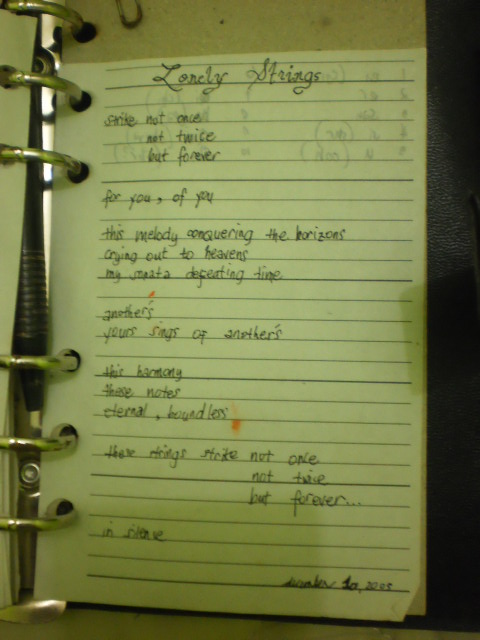 Lonely Strings
strike not once
not twice
but forever
for you, of you
this melody conquering the horizons
crying out to heavens
my sonata defeating time
another's
yours sings of another's
this harmony
these notes
eternal, boundless
these strings strike not once
not twice
but forever...
in silence
10, 2005